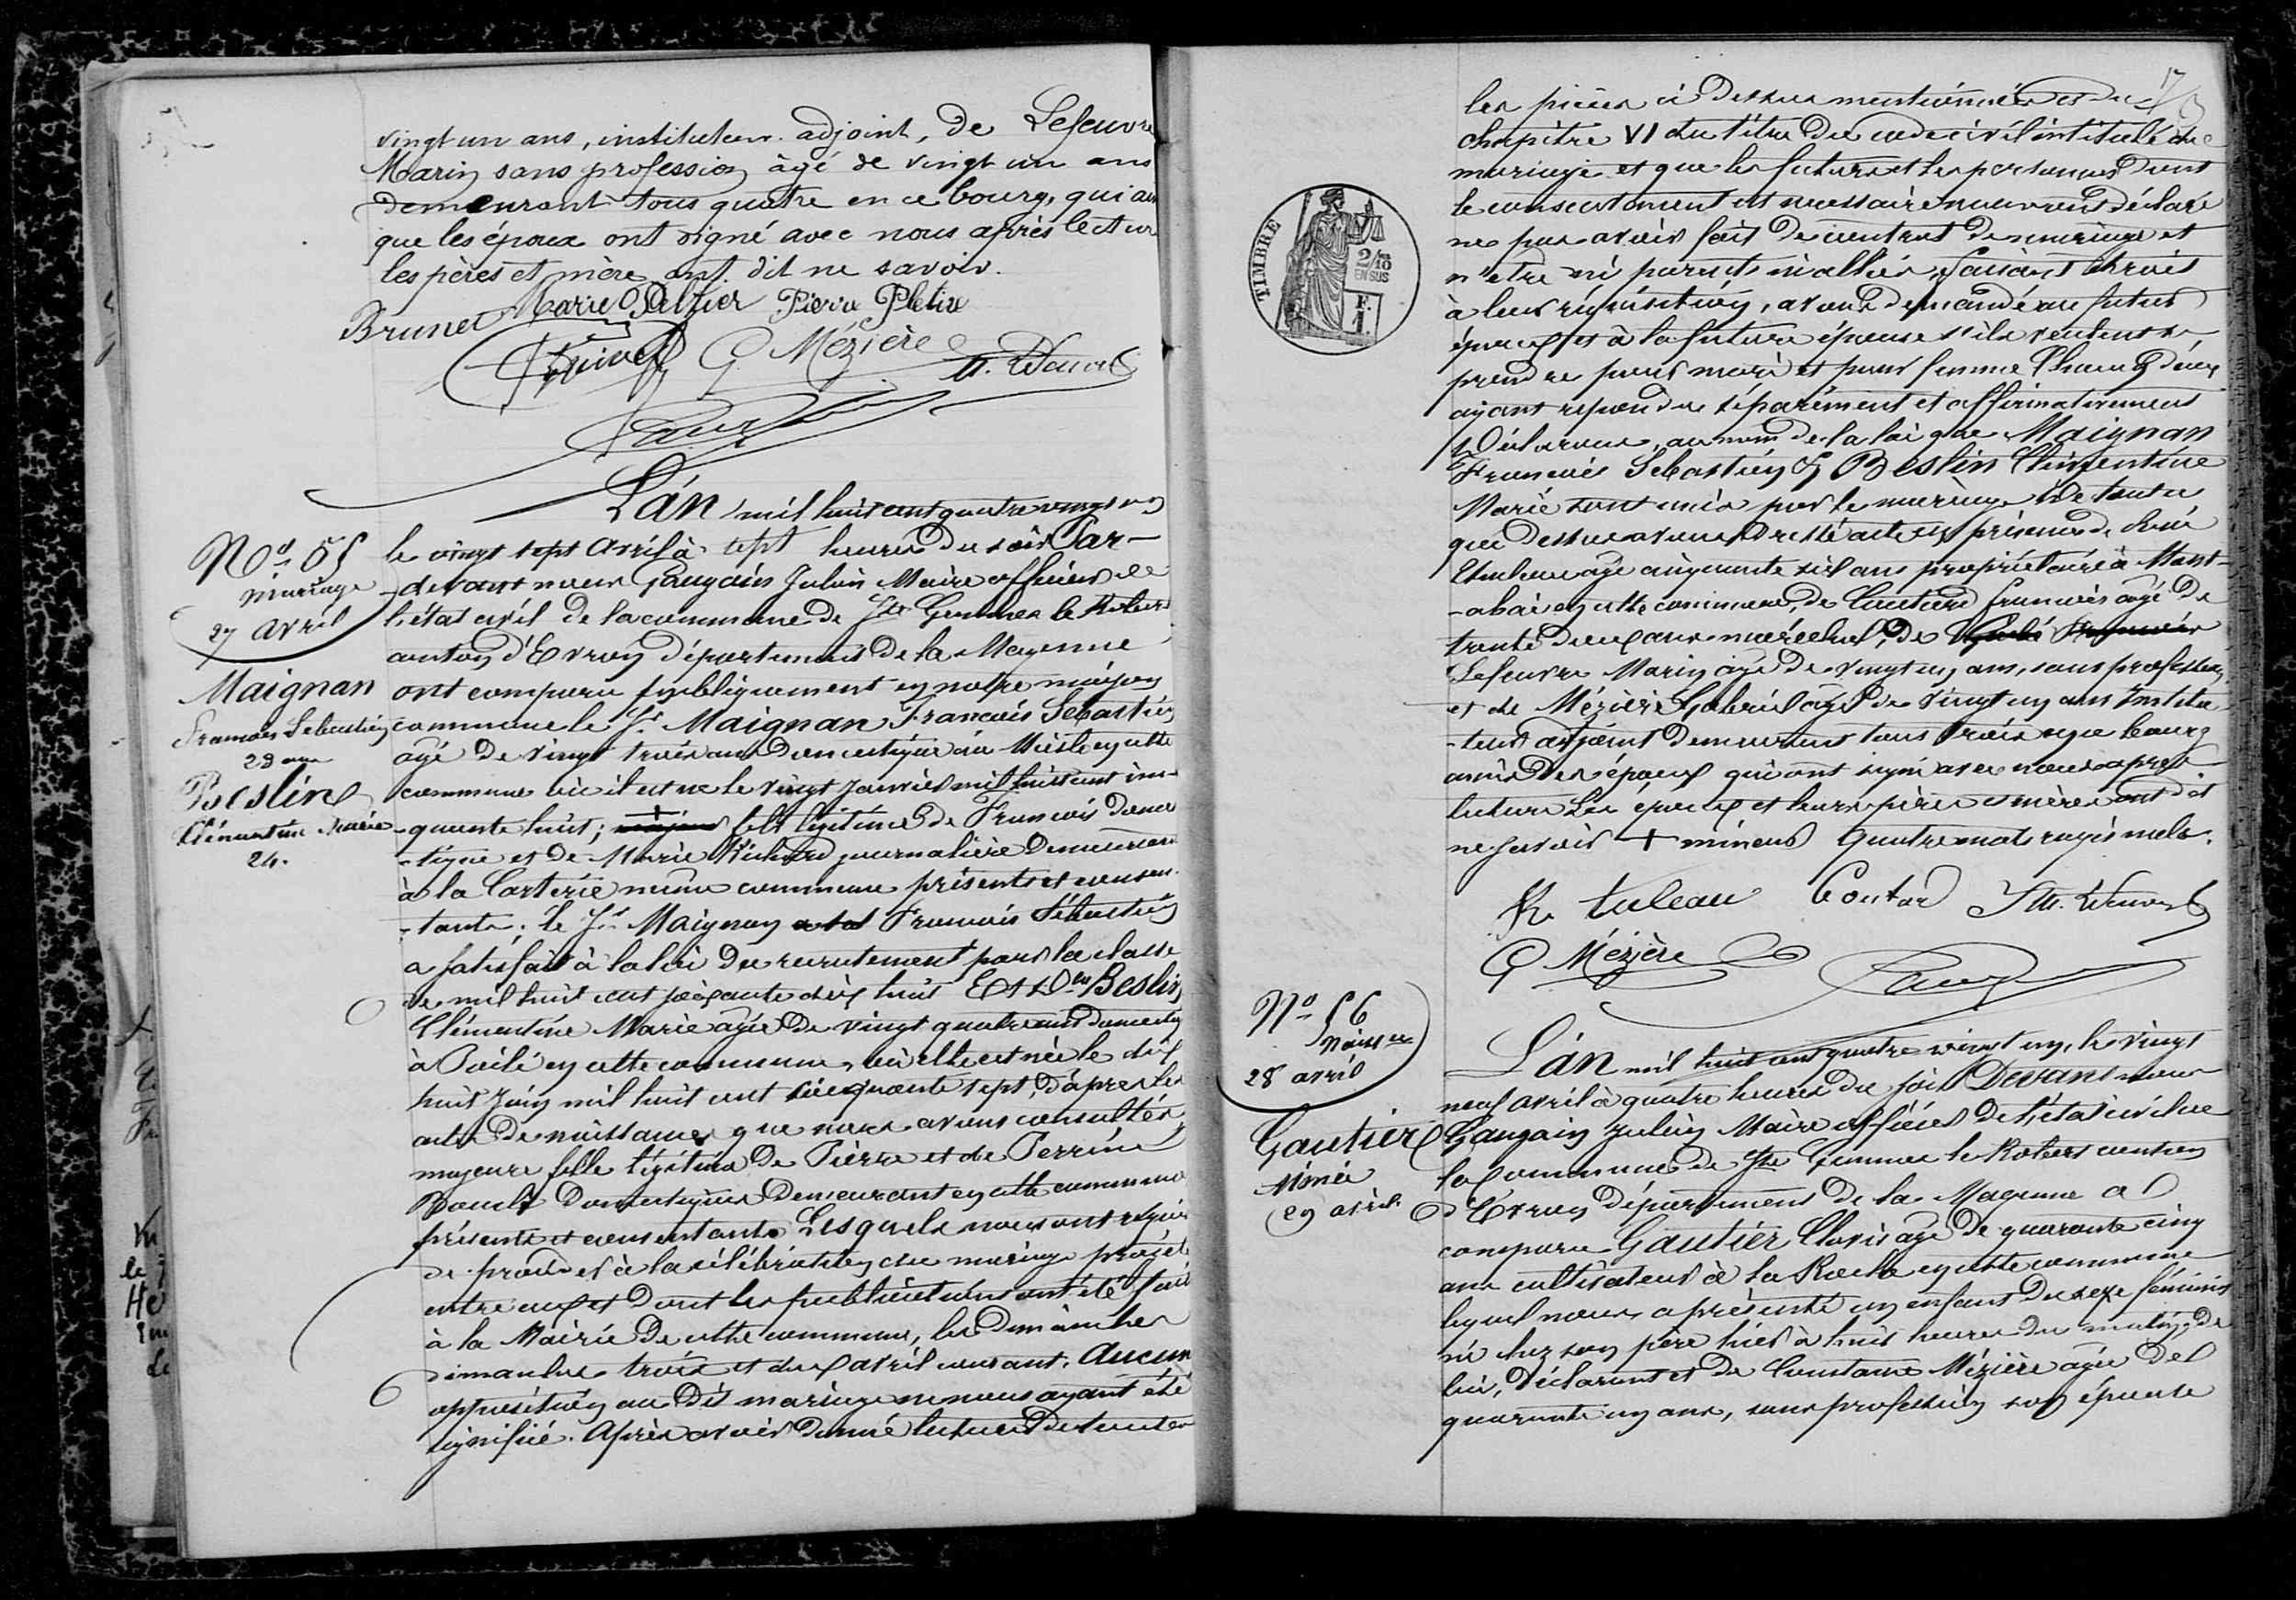 vingt un ans, instituteur adjoint, de Lefeuvre
Marin sans profession âgé de vingt un ans
demeurant tous quatre en ce bourg, qui ain
que les époux ont signé avec nous après lecture
les pères et mère ont dit ne savoir.
Brunet Marie Peltier Pierre
G. Mézière
L'án mil huit cent quatre vingt un
No 55
mariage
27 avril
Maignan
Francois Sebastien
23 ans
Beslin
Clémentine Marie
24.
le vingt sept avril à sept heures du soir Par-
-devant nous Gangain Julien Maire officier de
l'état civil de la commune de Ste Gemmes le Robert
canton d'Evron département de la Mayenne
ont comparu publiquement en notre maison
commune le Sr. Maignan Francois Sebastien
agé de vingt trois ans domestique au en cette
commune où il est né le vingt janvier mil huit cent cin-
-quante huit; majeur fils légitime de Francois domes
-tique et de Marie Richard journalière demeurant
à la Carterie même commune présents et consen-
-tants; le Sr Maignan Francois Sébastien
a satisfait à la loi du recrutement pour la classe
de mil huit cent soixante dix huit Et Dlle Beslin
Clémentine Marie agée de vingt quatre ans domestiq
à en cette commune, où elle est née le dix
huit juin mil huit cent cinquante sept, d'après les
actes de naissance que nous avons consultés,
majeure fille légitime de Pierre et de Perrine
domestiques demeurant en cette commune
présents et consentants Lesquels nous ont requis
de procéder à la célébration du mariage projeté
entre eux et dont les publications ont été faites
à la Mairie de cette commune, les dimanches
dimanches trois et dix avril courant. Aucune
opposition au dit mariage ne nous ayant été
signifiée. Après avoir donné lecture de toutes
les pièces ci dessus mentionnées et du
chapitre VI du titre du code civil intitulé du
mariage et que les futurs et les personnes dont
le consentement est necessaire nous ont déclaré
ne pas avoir fait de contrat de mariage et
n'etre ni parents ni alliés, faisant droit
à leur réquisition, avons demandé au futur
époux et à la future épouse s'ils veulent se
prendre pour mari et pour femme Chacun d'eux
ayant répondu séparément et affirmativement
Déclarons, au nom de la loi que Maignan
Francois Sébastien & Beslin Clémentine
Marie sont unis par le mariage De tout ce
que dessus avons dressé acte en présence de René
Tuleau agé cinquante six ans propriétaire à Mont-
-abain en cette commune, de Coutard francois agé de
trente deux ans maréchal, de
Lefeuvre Marin agé de vingt un ans, sans profession,
et de Mézière Gabriel agé de vingt un ans Institu-
-teur adjoint demeurant tous trois en ce bourg
amis des époux qui ont signé avec nous après
lecture Les époux et leurs pères et mères ont dit
ne savoir + mineur quatre mots rayés nuls.
R. tuleau Coutard
G Mézière
TIMBRE
2/10
EN SUS
F.
1.
No 56
naissce
28 avril
Gautier
Aimée
29 avril
L'án mil huit cent quatre vingt un, le vingt
neuf avril à quatre heures du soir Devant nous
Gangain Julien Maire officier de l'état civil de
la commune de Ste Gemmes le Robert canton
d'Evron département de la Mayenne a
comparu Gautier Clovis agé de quarante cinq
ans cultivateur à la Roche en cette commune
lequel nous a présenté un enfant du sexe féminin
né chez son père hier à huit heures du matin, de
lui, déclarant et de Constance Mézière agée de
quarante un ans, sans profession son épouse